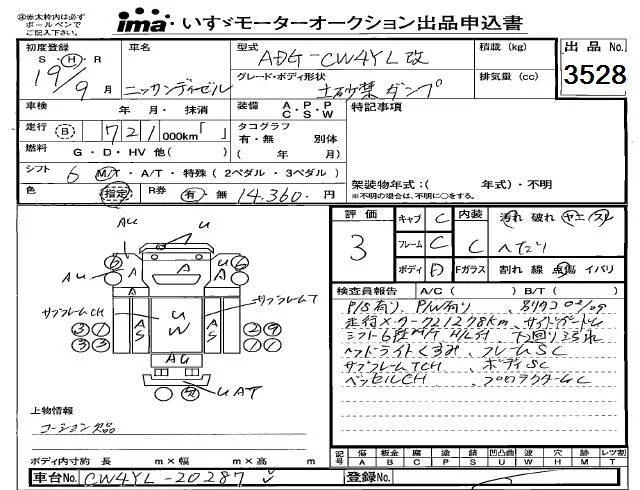 ④赤太枠内は必ず
ボールペンで
ご記入下さい。
ima いすゞモーターオークション出品申込書
初度登録
S・H・R
19/9月
車名
ニッサンディーゼル
型式
ADG-CW4YL改
グレード・ボディ形状
土砂禁ダンプ
積載(kg)
排気量(cc)
出品No.
3528
車検
年 月・ 抹消
装備 A.P.P C.S.W
特記事項
走行 B 721 000km「 」
タコグラフ
有・無 別体
( 年 月)
燃料 G・D・HV 他( )
シフト 6 M/T・A/T・特殊(2ペダル・3ペダル)
架装物年式:( 年式)・不明
※不明の場合は、不明に○をする。
色 指定 R券 有・無 14,360.円
評価 3
キャブ C
フレーム C
ボディ D
内装 C
Fガラス
汚れ 破れ ヤニ スレ
ヘたり
割れ 線 点傷 イバリ
AU U
AU A A U 6
A
サブフレームCH サブフレームT
A S U W A S
3 1 2 9
3 3 3 1
AU
UAT
検査員報告 A/C( ) B/T( )
P/S有り P/W有り
走行メーター721278km サイドガードム
シフト6段M/T H/L付 下回りコミ有
ヘッドライトくすみ フレームSC
サブフレームTCH ボディSC
ベッセルCH プロテクターム C
上物情報
コーション欠品
ボディ内寸約 長 m×幅 m×高 m
記号 傷 A 板金 B 腐 C 塗 P 錆 S 凹凸曲 U 波 W 穴 H 跡 M レツ割 T
車台No. CW4YL-20287
登録番号No.